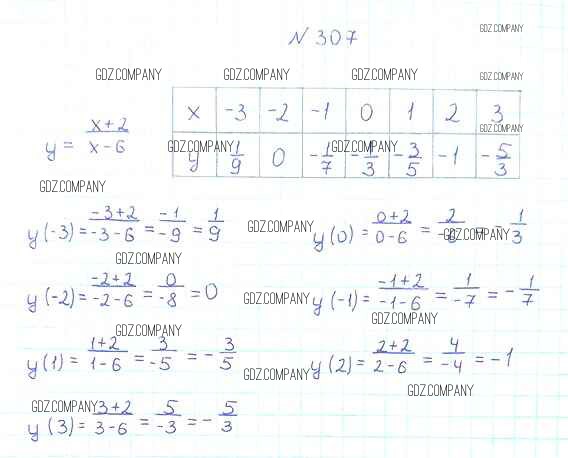 N 307
GDZ.COMPANY
GDZ.COMPANY GDZ.COMPANY GDZ.COMPANY GDZ.COMPANY
y = (x+2)/(x-6)
x -3 -2 -1 0 1 2 3
GDZ.COMPANY
y 1/9 0 -1/7 -1/3 -3/5 -1 -5/3
GDZ.COMPANY GDZ.COMPANY
GDZ.COMPANY
y(-3) = (-3+2)/(-3-6) = (-1)/(-9) = 1/9
GDZ.COMPANY
y(0) = (0+2)/(0-6) = 2/-6 = -1/3
GDZ.COMPANY
GDZ.COMPANY
y(-2) = (-2+2)/(-2-6) = 0/(-8) = 0
GDZ.COMPANY
y(-1) = (-1+2)/(-1-6) = 1/(-7) = -1/7
GDZ.COMPANY
GDZ.COMPANY
y(1) = (1+2)/(1-6) = 3/(-5) = -3/5
GDZ.COMPANY
y(2) = (2+2)/(2-6) = 4/(-4) = -1
GDZ.COMPANY
GDZ.COMPANY
y(3) = (3+2)/(3-6) = 5/(-3) = -5/3